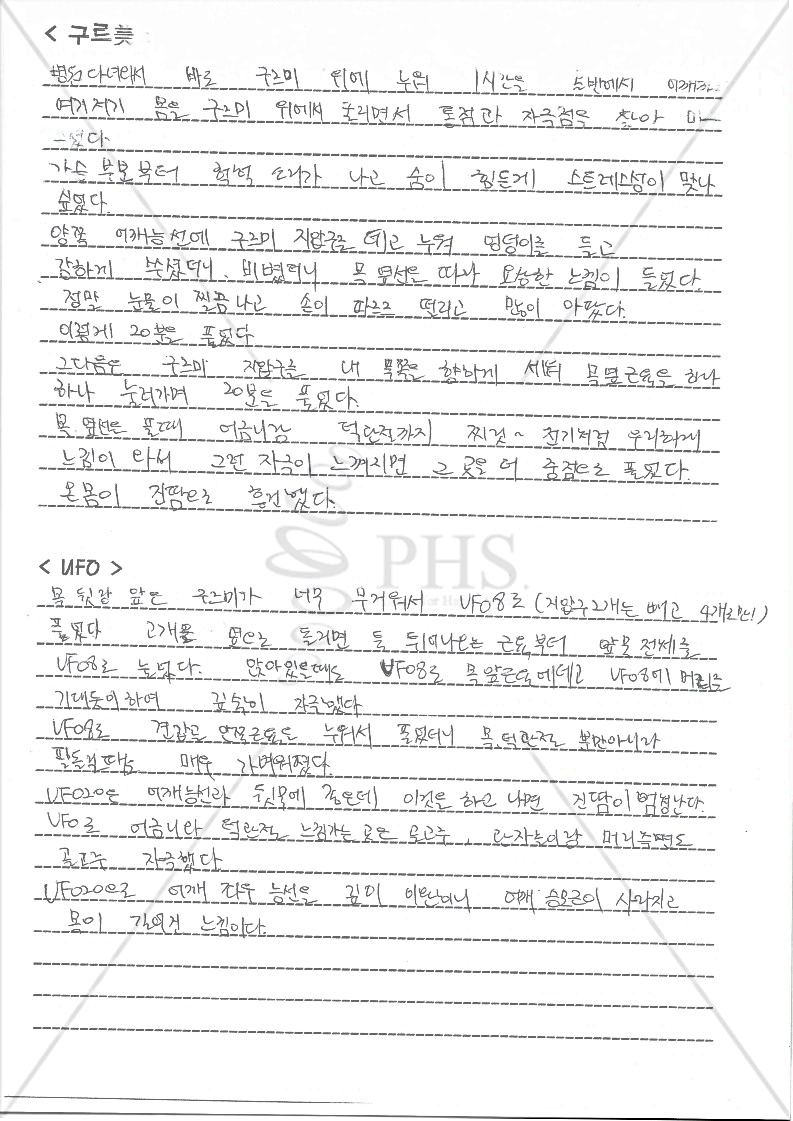 < 구르믓
병원다녀와서 바로 구르미 위에 누워 1시간을 초반에서
여기저기 몸을 구르미 위에서 돌리면서 통점과 자극점을 찾아
었다
가슴 부분부터 헉헉 소리가 나고 숨이 힘든게 스트레스성이 맞나
싶었다.
양쪽 어깨능선에 구르미 지압구를 대고 누워 엉덩이를 들고
강하게 쑤셨더니, 비볐더니 목 옆선을 따라 오싹한 느낌이 들었다
정말 눈물이 찔끔나고 손이 파르르 떨리고 많이 아팠다.
이렇게 20분을 풀었다
그다음은 구르미 지압구를 내 목쪽을 향하게 세워 목옆근육을 하나
하나 눌러가며 20분을 풀었다.
목 옆선을 풀때 어금니랑 턱관절까지 찌릿~ 전기처럼 우리하게
느낌이 와서 그런 자극이 느껴지면 그 곳을 더 중점으로 풀었다.
온몸이 진땀으로 흥건했다.
PHS.
< UFO >
목 뒷랑 앞은 구르미가 너무 무거워서 UFO8로 (지압구2개는 빼고 4개로만!)
풀었다 고개를 옆으로 돌리면 툭 튀어나오는 근육부터 앞목 전체를
UFO8로 눌렀다. 앉아있을때도 UFO8로 목앞근육에대고 UFO8에 머리를
기대듯이하여 깊숙이 자극했다
UFO8로 견갑골 안쪽근육도 누워서 풀었더니 목,턱관절 뿐만아니라
팔들썩때도 매우 가벼워졌다.
UFO20은 어깨능선과 뒷목에 좋은데 이것을 하고 나면 진땀이 엄청난다.
UFO로 어금니와 턱관절 느낌가는 곳은 골고루, 관자놀이랑 머리측면도
골고루 자극했다
UFO20으로 어깨 좌우 능선을 깊이 이완하니 어깨 승모근이 사라지고
목이 길어진 느낌이다.